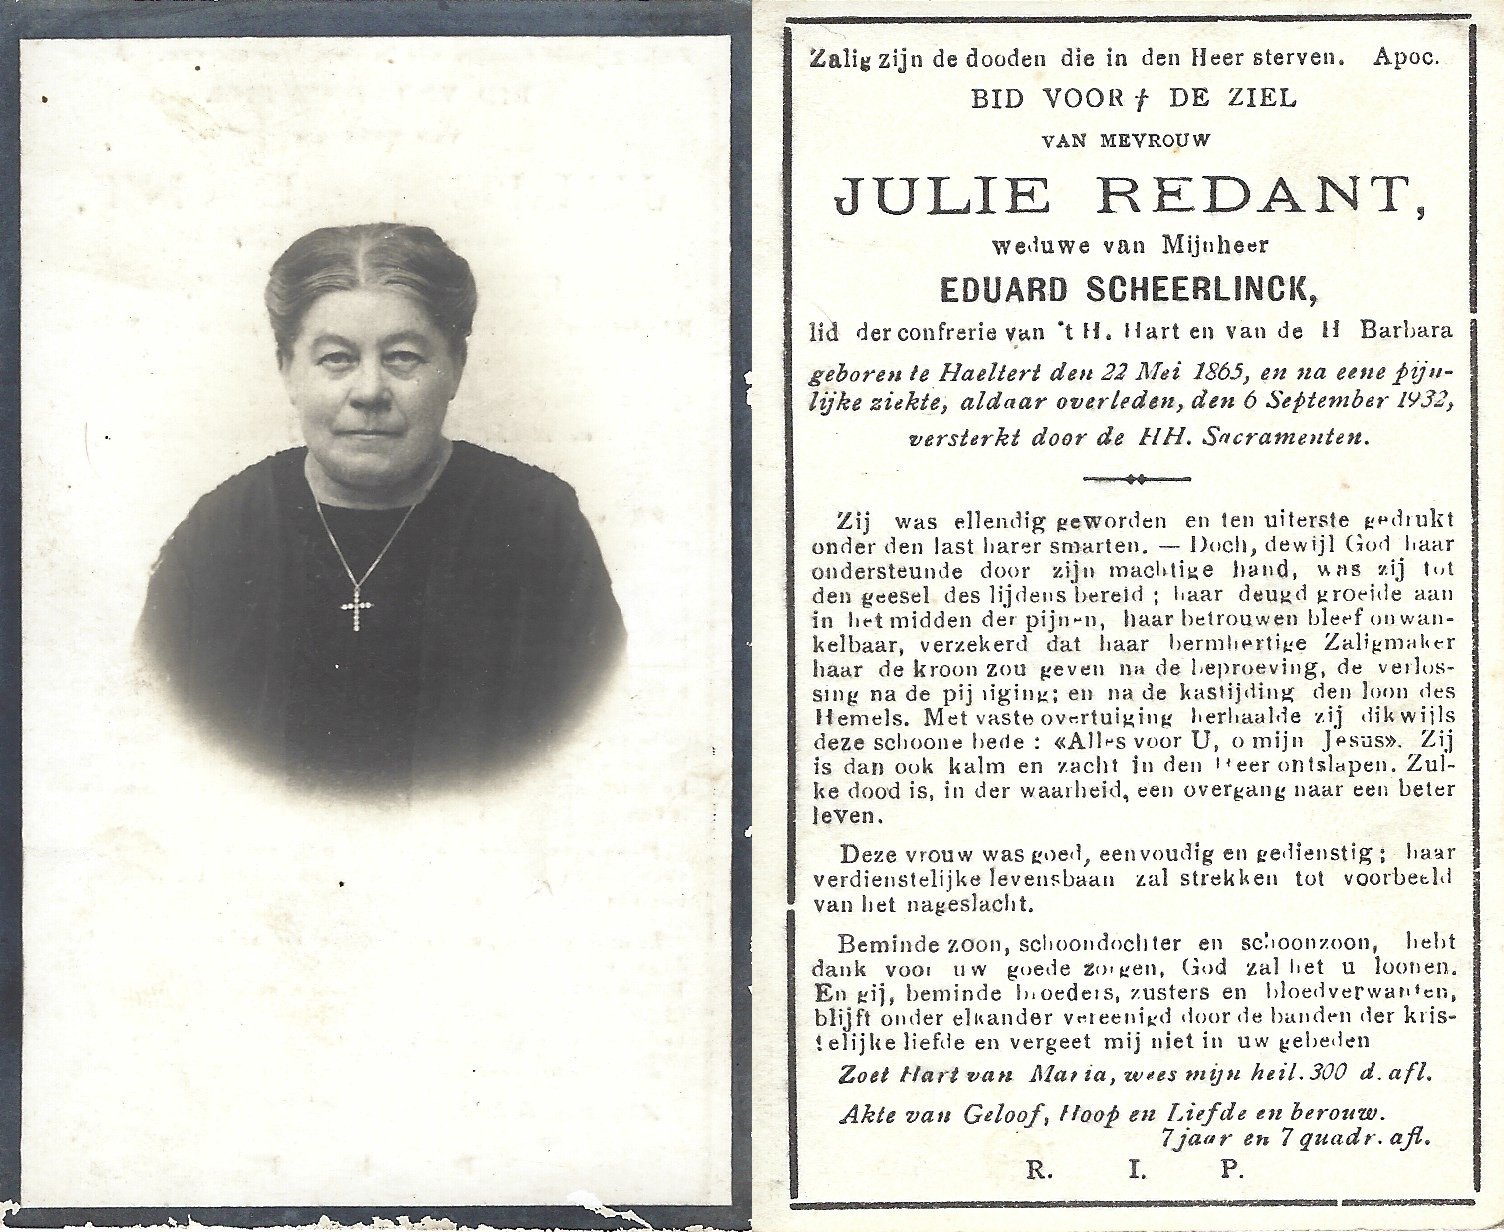 Zalig zijn de dooden die in den Heer sterven. Apoc.
BID VOOR † DE ZIEL
VAN MEVROUW
JULIE REDANT,
weduwe van Mijnheer
EDUARD SCHEERLINCK,
lid der confrerie van 't H. Hart en van de H Barbara
geboren te Haeltert den 22 Mei 1865, en na eene pijn-
lijke ziekte, aldaar overleden, den 6 September 1932,
versterkt door de HH. Sacramenten.
Zij was ellendig geworden en ten uiterste gedrukt
onder den last harer smarten. — Doch, dewijl God haar
ondersteunde door zijn machtige hand, was zij tot
den geesel des lijdens bereid ; haar deugd groeide aan
in het midden der pijnen, haar betrouwen bleef onwan-
kelbaar, verzekerd dat haar bermhertige Zaligmaker
haar de kroon zou geven na de beproeving, de verlos-
sing na de pijniging; en na de kastijding den loon des
Hemels. Met vaste overtuiging herhaalde zij dikwijls
deze schoone bede : «Alles voor U, o mijn Jesus». Zij
is dan ook kalm en zacht in den Heer ontslapen. Zul-
ke dood is, in der waarheid, een overgang naar een beter
leven.
Deze vrouw was goed, eenvoudig en gedienstig ; haar
verdienstelijke levensbaan zal strekken tot voorbeeld
van het nageslacht.
Beminde zoon, schoondochter en schoonzoon, hebt
dank voor uw goede zorgen, God zal het u loonen.
En gij, beminde broeders, zusters en bloedverwanten,
blijft onder elkander vereenigd door de banden der kris-
telijke liefde en vergeet mij niet in uw gebeden
Zoet Hart van Maria, wees mijn heil. 300 d. afl.
Akte van Geloof, Hoop en Liefde en berouw.
7 jaar en 7 quadr. afl.
R. I. P.